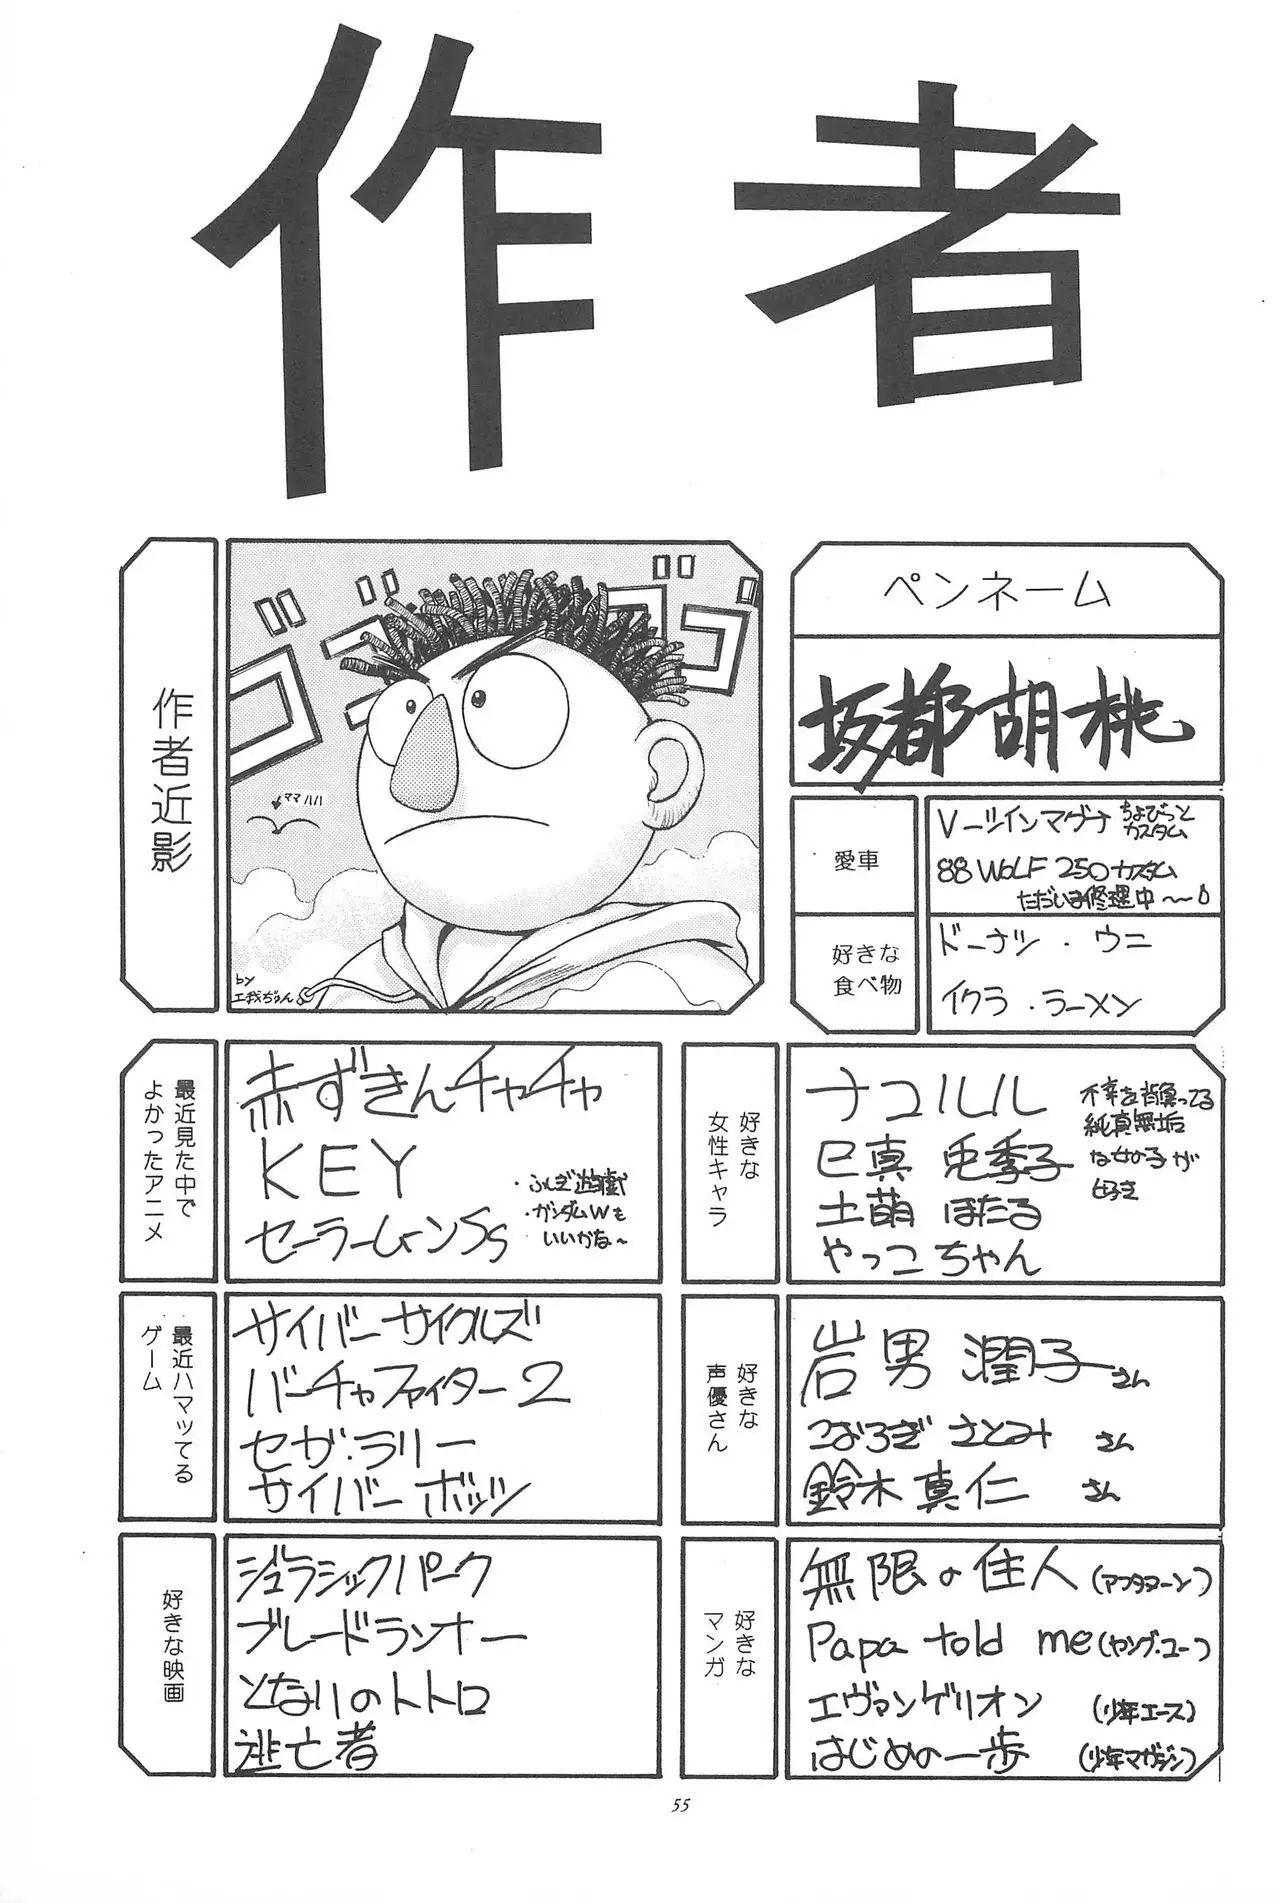 作者
作者近影
ゴゴゴゴ
ママ ハハ
by
ペンネーム
坂都胡桃
愛車
V-ツインマグナ ちょびっとカスタム
88 WOLF 250カスタム
ただいま修理中~
好きな
食べ物
ドーナツ・ウニ
イクラ・ラーメン
最近見た中で
よかったアニメ
赤ずきんチャチャ
KEY
セーラームーンSS
・ふしぎ遊戯
・ガンダムWも
いいかな~
好きな
女性キャラ
ナコルル
巳真 兎季子
土萌 ほたる
やっこちゃん
不幸を背負ってる
純真無垢
な女の子が
好き
最近ハマッてる
ゲーム
サイバーサイクルズ
バーチャファイター2
セガ・ラリー
サイバーボッツ
好きな
声優さん
岩男 潤子さん
こおろぎ さとみ さん
鈴木真仁 さん
好きな映画
ジュラシックパーク
ブレードランナー
となりのトトロ
逃亡者
好きな
マンガ
無限の住人 (アフタヌーン)
Papa told me (ヤング・ユー)
エヴァンゲリオン (少年エース)
はじめの一歩 (少年マガジン)
55